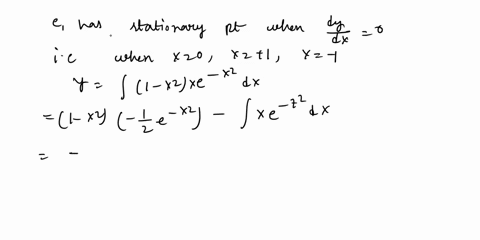 e, has stationary pt when dy/dx = 0
i.e when x=0, x=+1, x=-1
y = ∫ (1-x2) x e^{-x2} dx
= (1-x2) (-1/2 e^{-x2}) - ∫ x e^{-z2} dx
= -